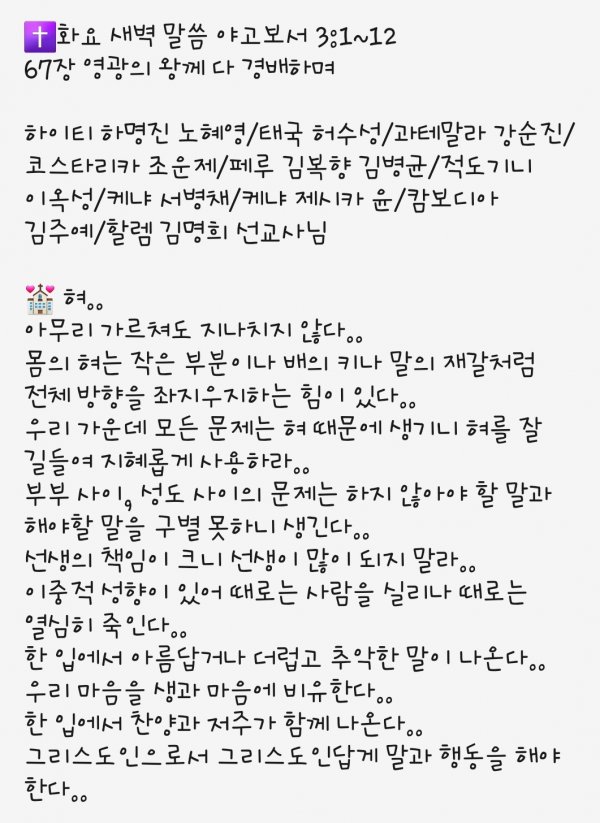 ✝️화요 새벽 말씀 야고보서 3:1~12
67장 영광의 왕께 다 경배하며
하이티 하명진 노혜영/태국 허수성/과테말라 강순진/
코스타리카 조운제/페루 김복향 김병균/적도기니
이옥성/케냐 서병채/케냐 제시카 윤/캄보디아
김주예/할렘 김명희 선교사님
💒 혀..
아무리 가르쳐도 지나치지 않다..
몸의 혀는 작은 부분이나 배의 키나 말의 재갈처럼
전체 방향을 좌지우지하는 힘이 있다..
우리 가운데 모든 문제는 혀 때문에 생기니 혀를 잘
길들여 지혜롭게 사용하라..
부부 사이, 성도 사이의 문제는 하지 않아야 할 말과
해야할 말을 구별 못하니 생긴다..
선생의 책임이 크니 선생이 많이 되지 말라..
이중적 성향이 있어 때로는 사람을 실리나 때로는
열심히 죽인다..
한 입에서 아름답거나 더럽고 추악한 말이 나온다..
우리 마음을 생과 마음에 비유한다..
한 입에서 찬양과 저주가 함께 나온다..
그리스도인으로서 그리스도인답게 말과 행동을 해야
한다..